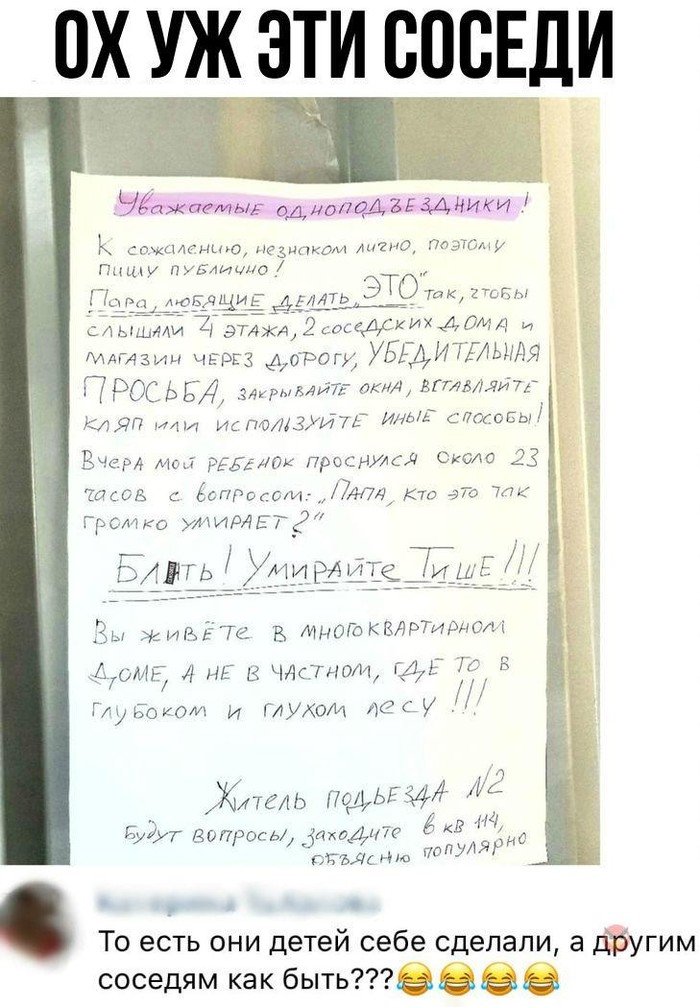 ОХ УЖ ЭТИ СОСЕДИ
Уважаемые одноподъездники!
К сожалению, незнаком лично, поэтому
пишу публично!
Пара, любящие делать „ЭТО“ так, чтобы
слышали 4 этажа, 2 соседских дома и
магазин через дорогу, УБЕДИТЕЛЬНАЯ
ПРОСЬБА, закрывайте окна, вставляйте
кляп или используйте иные способы!
Вчера мой ребенок проснулся около 23
часов с вопросом: „Папа, кто это так
громко умирает?“
Блять! Умирайте Тише!!!
Вы живёте в многоквартирном
доме, а не в частном, где то в
глубоком и глухом лесу!!!
Житель подъезда №2
Будут вопросы, заходите в кв 114,
объясню популярно
То есть они детей себе сделали, а другим
соседям как быть???😂😂😂😂